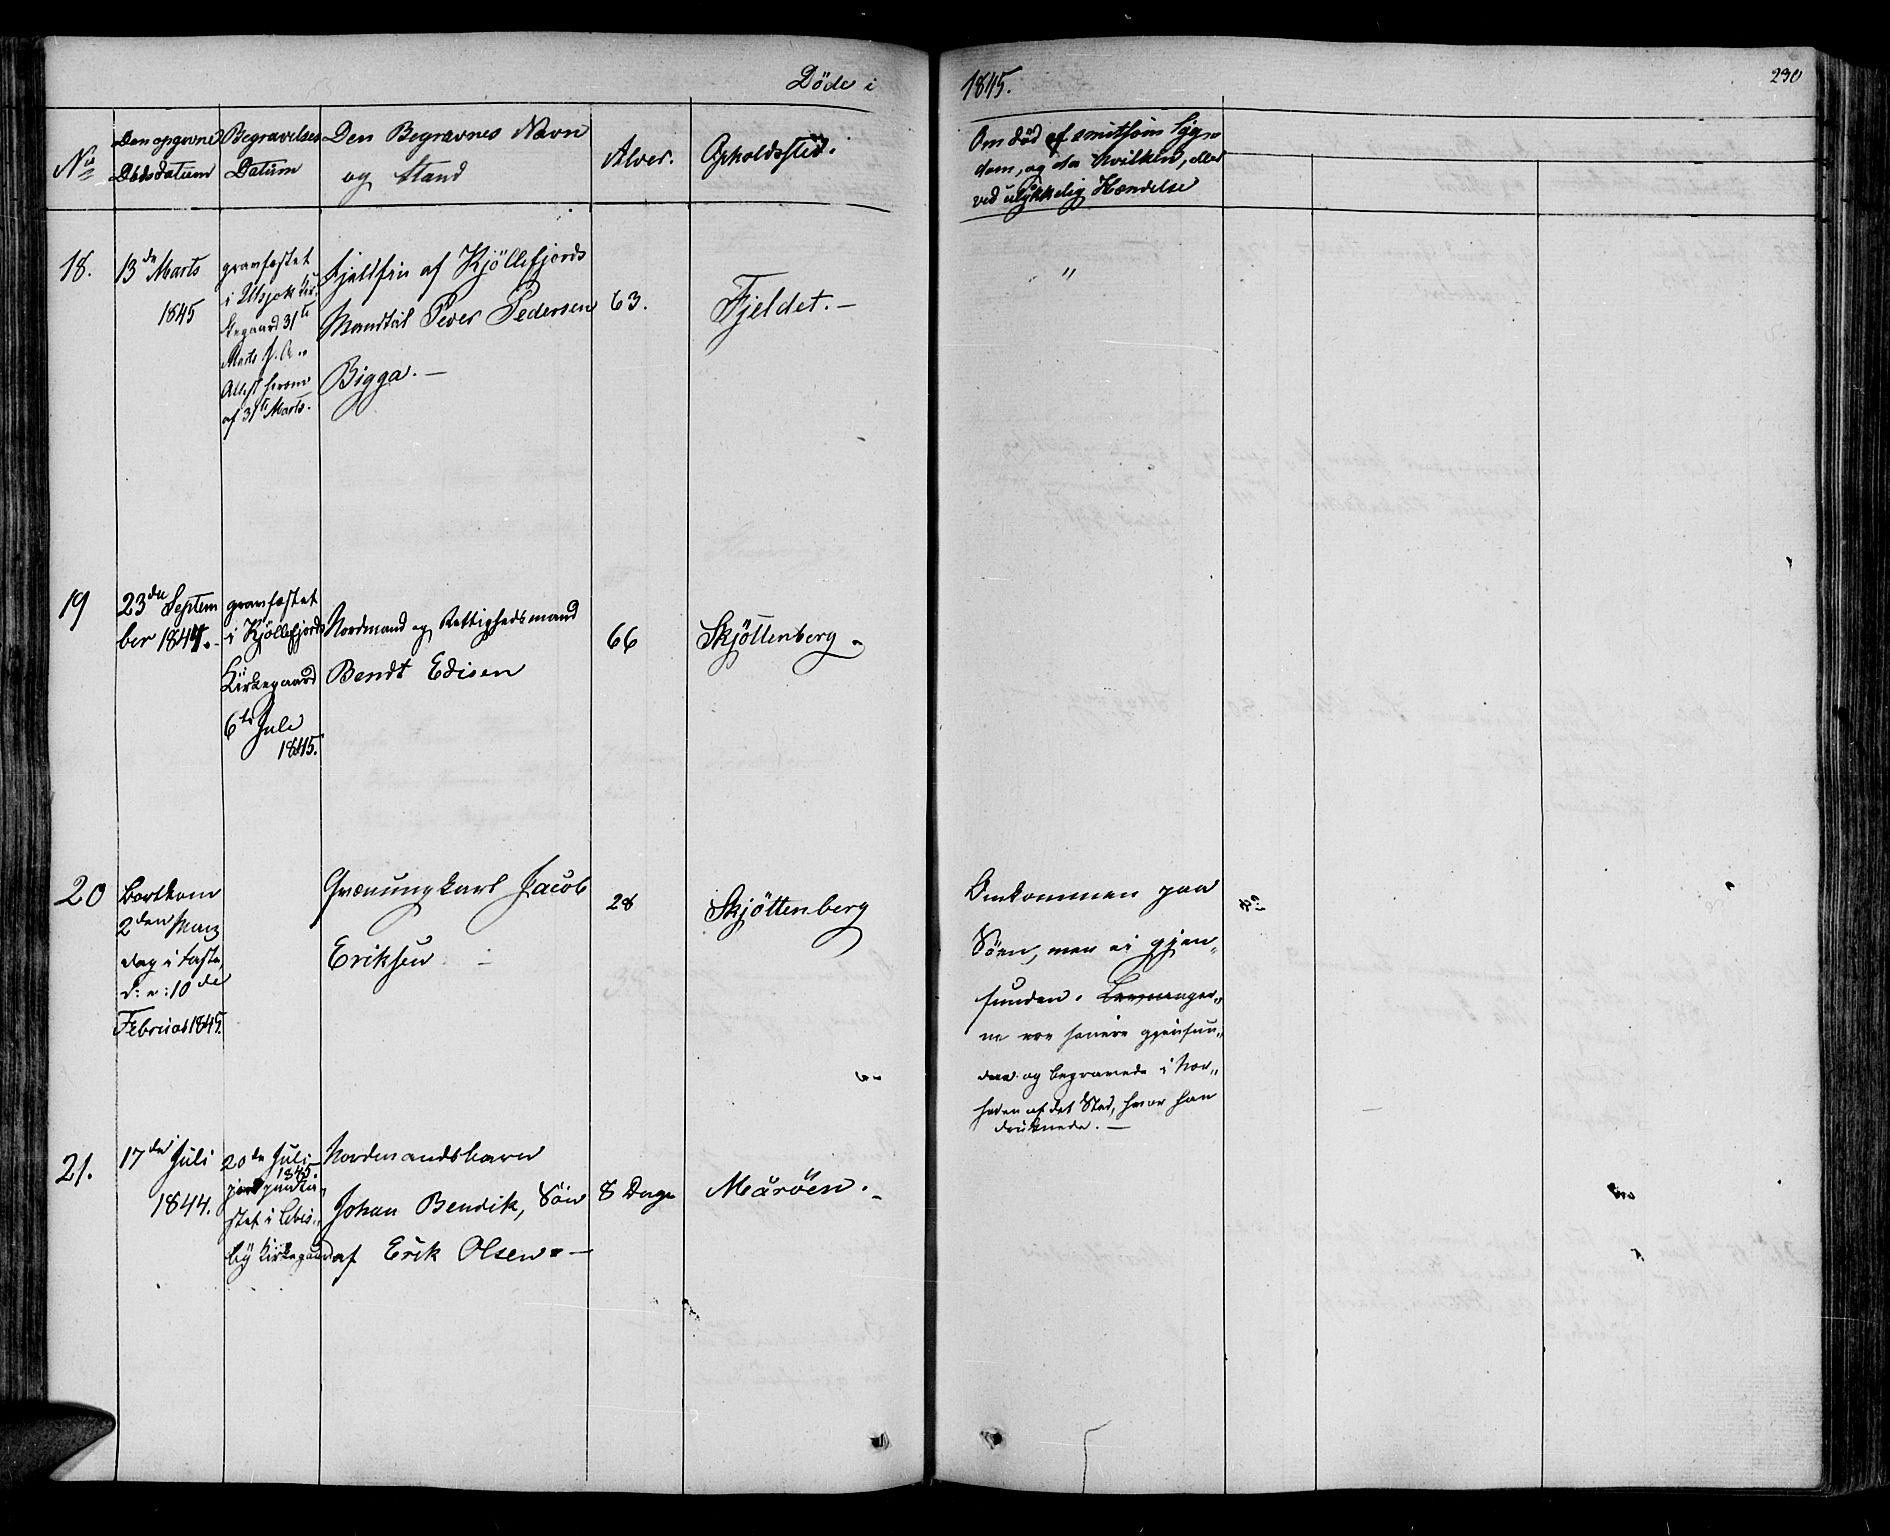 Döde i 1845.
230
No
Den opgivne Dödsdatum
Begravelses Datum
Den Begravnes Navn og Stand
Alder.
Opholdssted.
Om död af smitsom Syg„
dom, og da hvilken, eller
ved ulykkelig Hændelse
18.
13de Marts
1845
gravfæstet
i Utsjok Kir„
kegaard 31te
Marts s. A.
Attest herom
af 31te Marts.
Fjeldfin af Kjöllefjords
Mandtal Peder Pedersen
Bigga. —
63.
Fjeldet. —
"
19
23de Septem
ber 1844.
gravfæstet
i Kjöllefjords
Kirkegaard
6te Juli
1845.
Nordmand og Rettighedsmand
Bendt Edisen
66
Skjöttenberg.
20
Bortkom
2den Man
dag i Faste,
d: e: 10de
Februar 1845.
Qvænungkarl Jacob
Eriksen —
28
Skjöttenberg
Omkommen paa
Söen, men ei gjen„
funden.
ne ere senere gjenfun„
dne og begravede i Nær„
heden af det Sted, hvor han
druknede. —
21.
17de Juli
1844.
20de Juli
1845.
jordpaaka
stet i Lebes„
by Kirkegaard
Nordmandsbarn
Johan Bendik, Sön
af Erik Olsen. —
8 Dage
Maröen. —